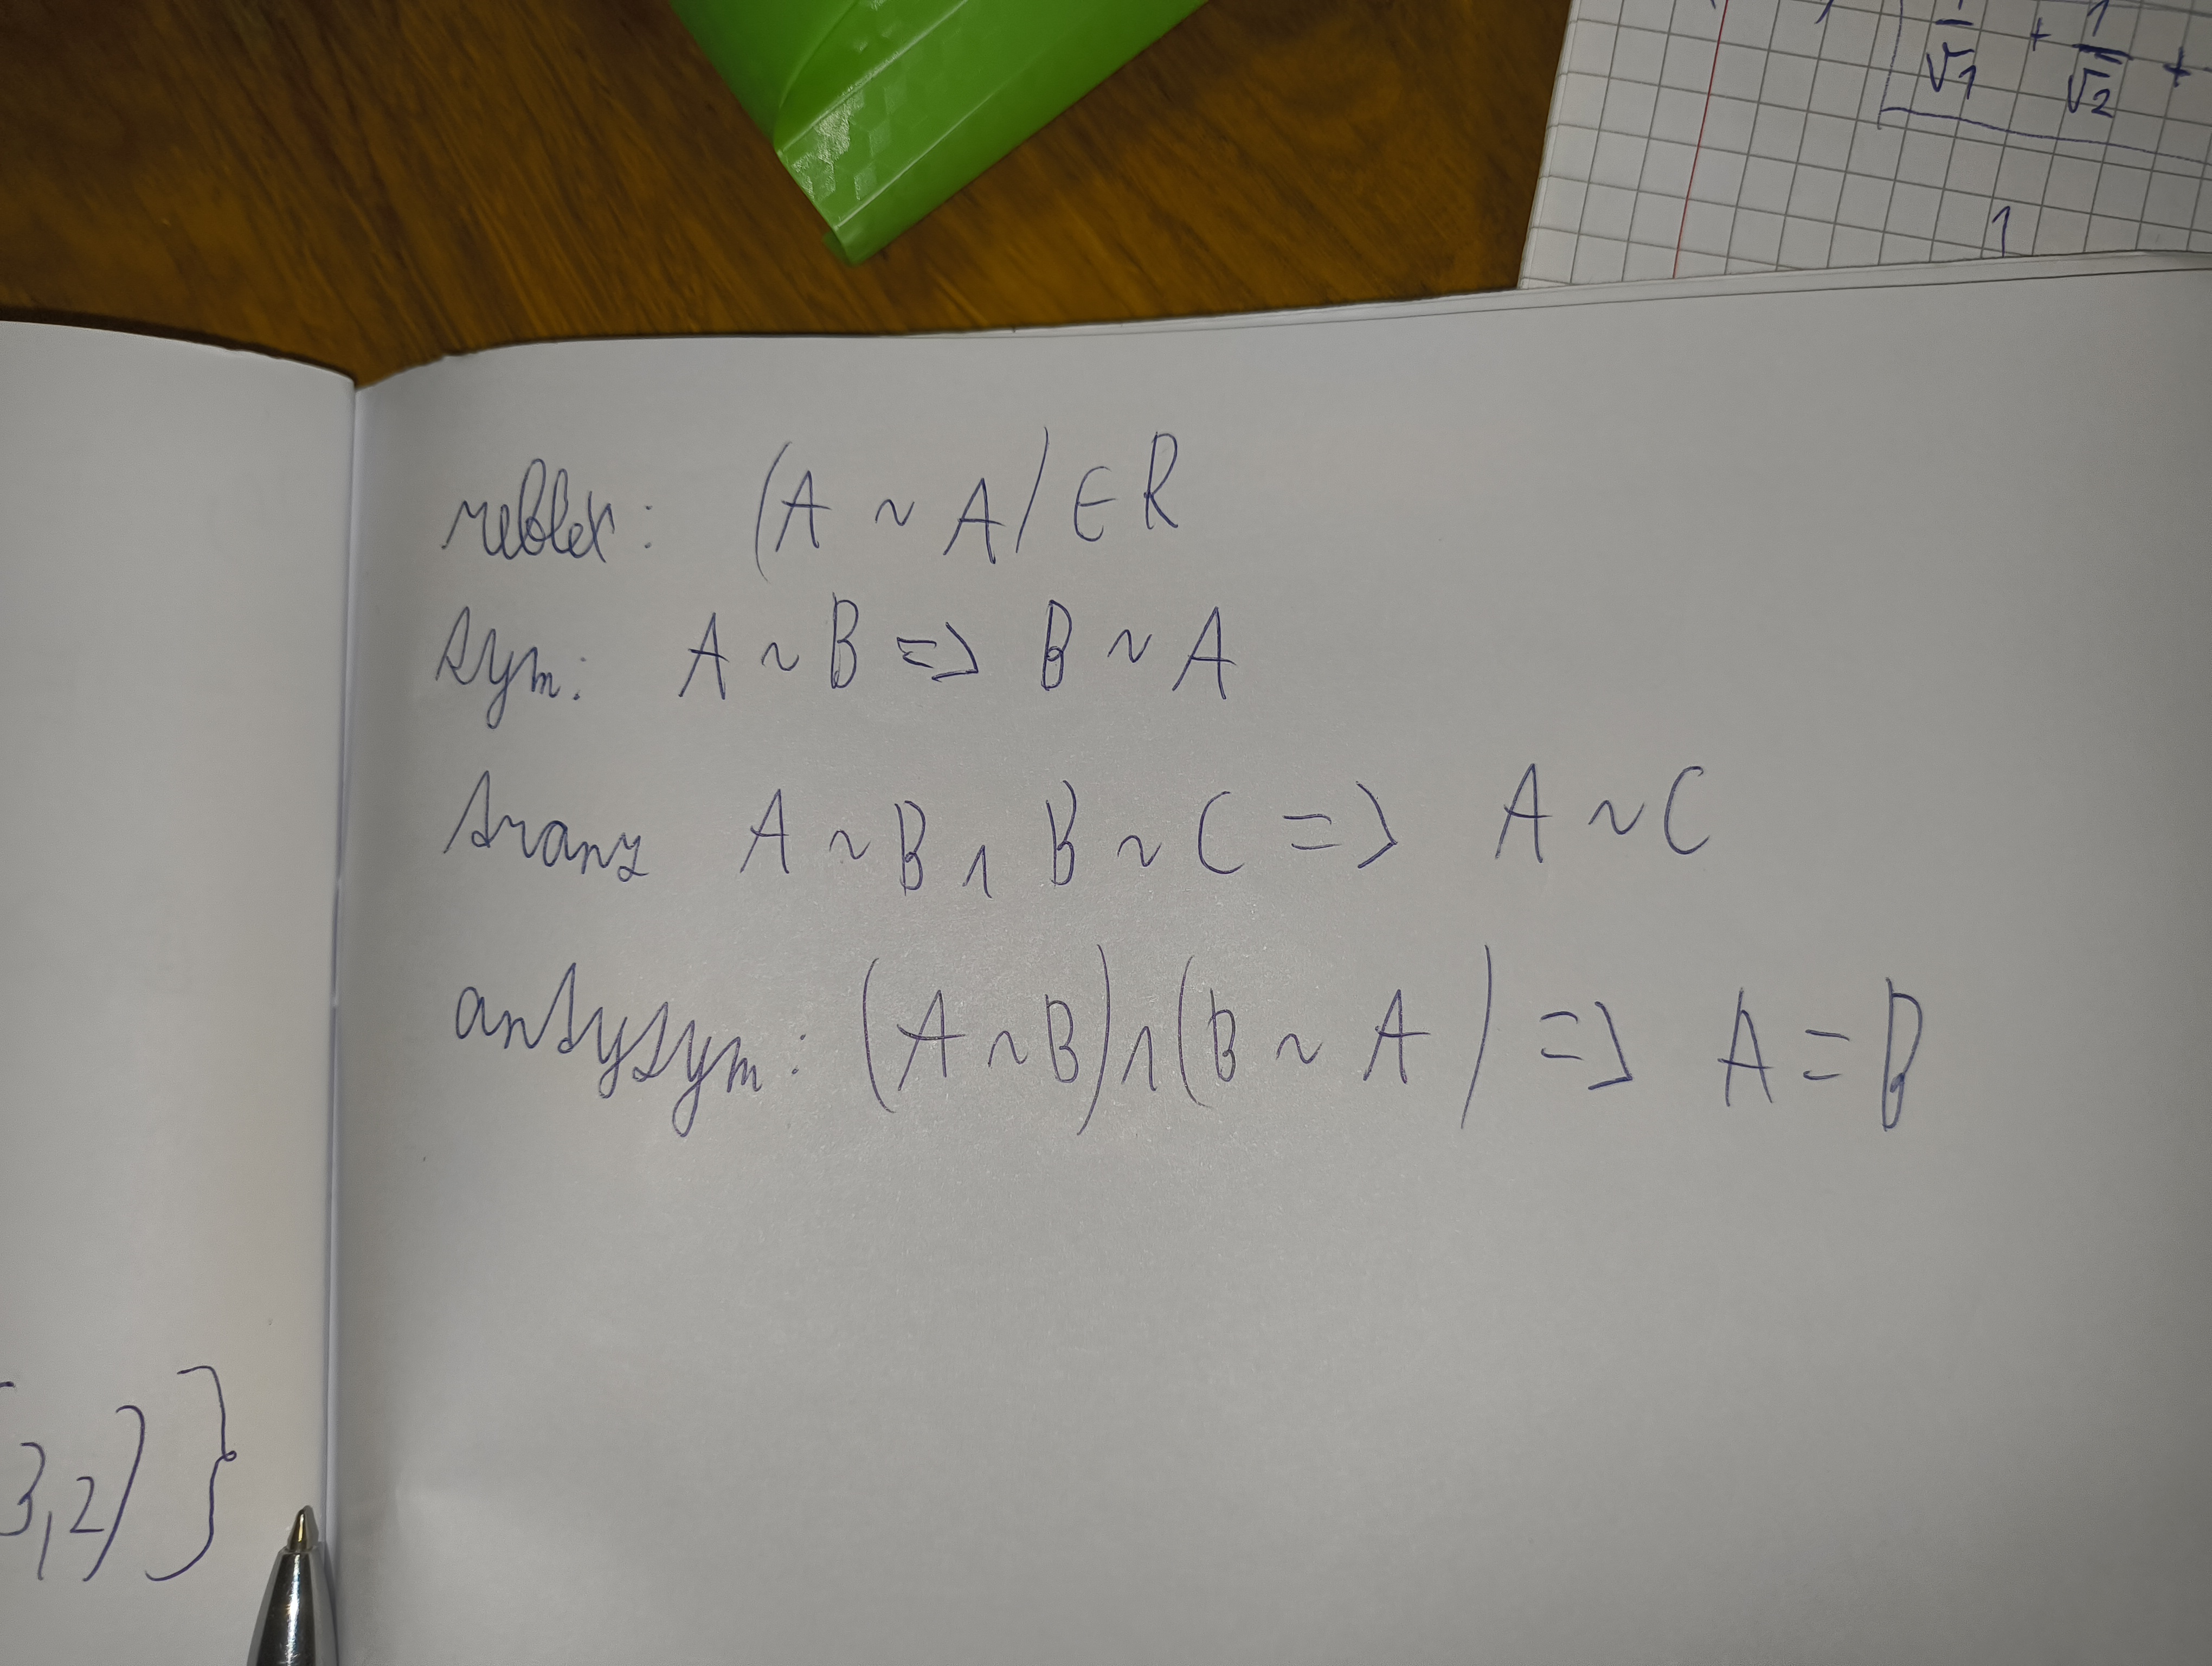 1/√1 + 1/√2 +
1
reflex: (A ~ A) ∈ R
sym: A ~ B => B ~ A
tranz A ~ B ∧ B ~ C => A ~ C
antysym: (A ~ B) ∧ (B ~ A) => A = B
3,2)}